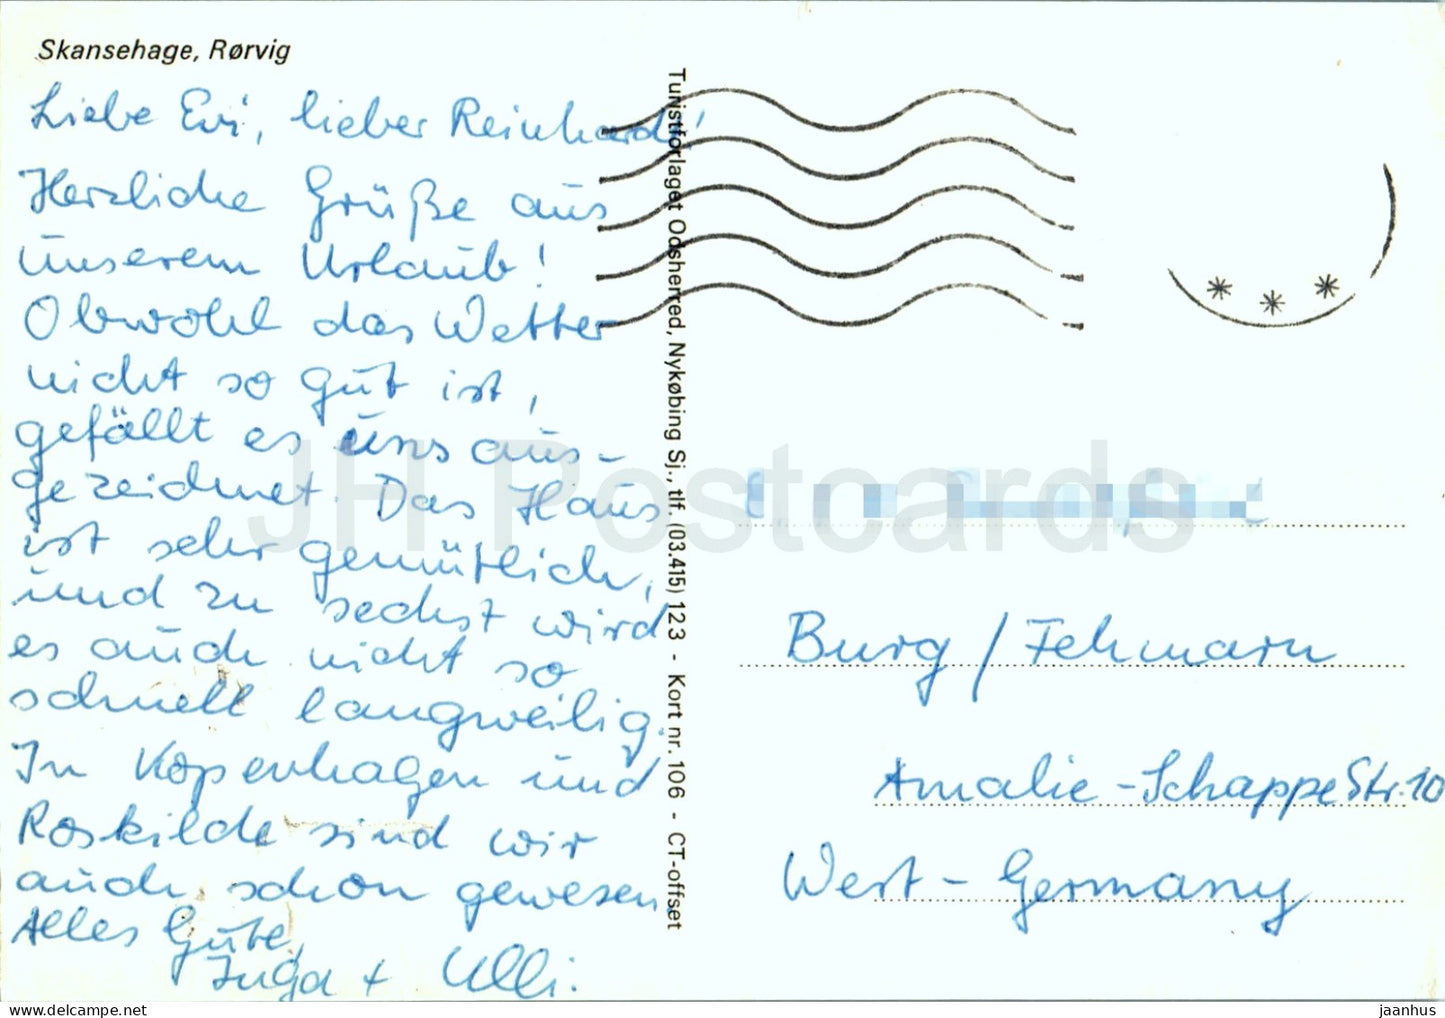 Skansehage, Rørvig
Liebe Evi, lieber Reinhard!
Herzliche Grüße aus
unserem Urlaub!
Obwohl das Wetter
nicht so gut ist,
gefällt es uns aus-
gezeichnet. Das Haus
ist sehr gemütlich,
und zu sechst wird
es auch nicht so
schnell langweilig.
In Kopenhagen und
Roskilde sind wir
auch schon gewesen.
Alles Gute,
Inga + Ulli.
Turistforlaget Odsherred, Nykøbing Sj., tlf. (03.415) 123 - Kort nr. 106 - CT-offset
Burg / Fehmarn
Amalie-Schappe Str. 10
West-Germany
JH Postcards
jaanhus